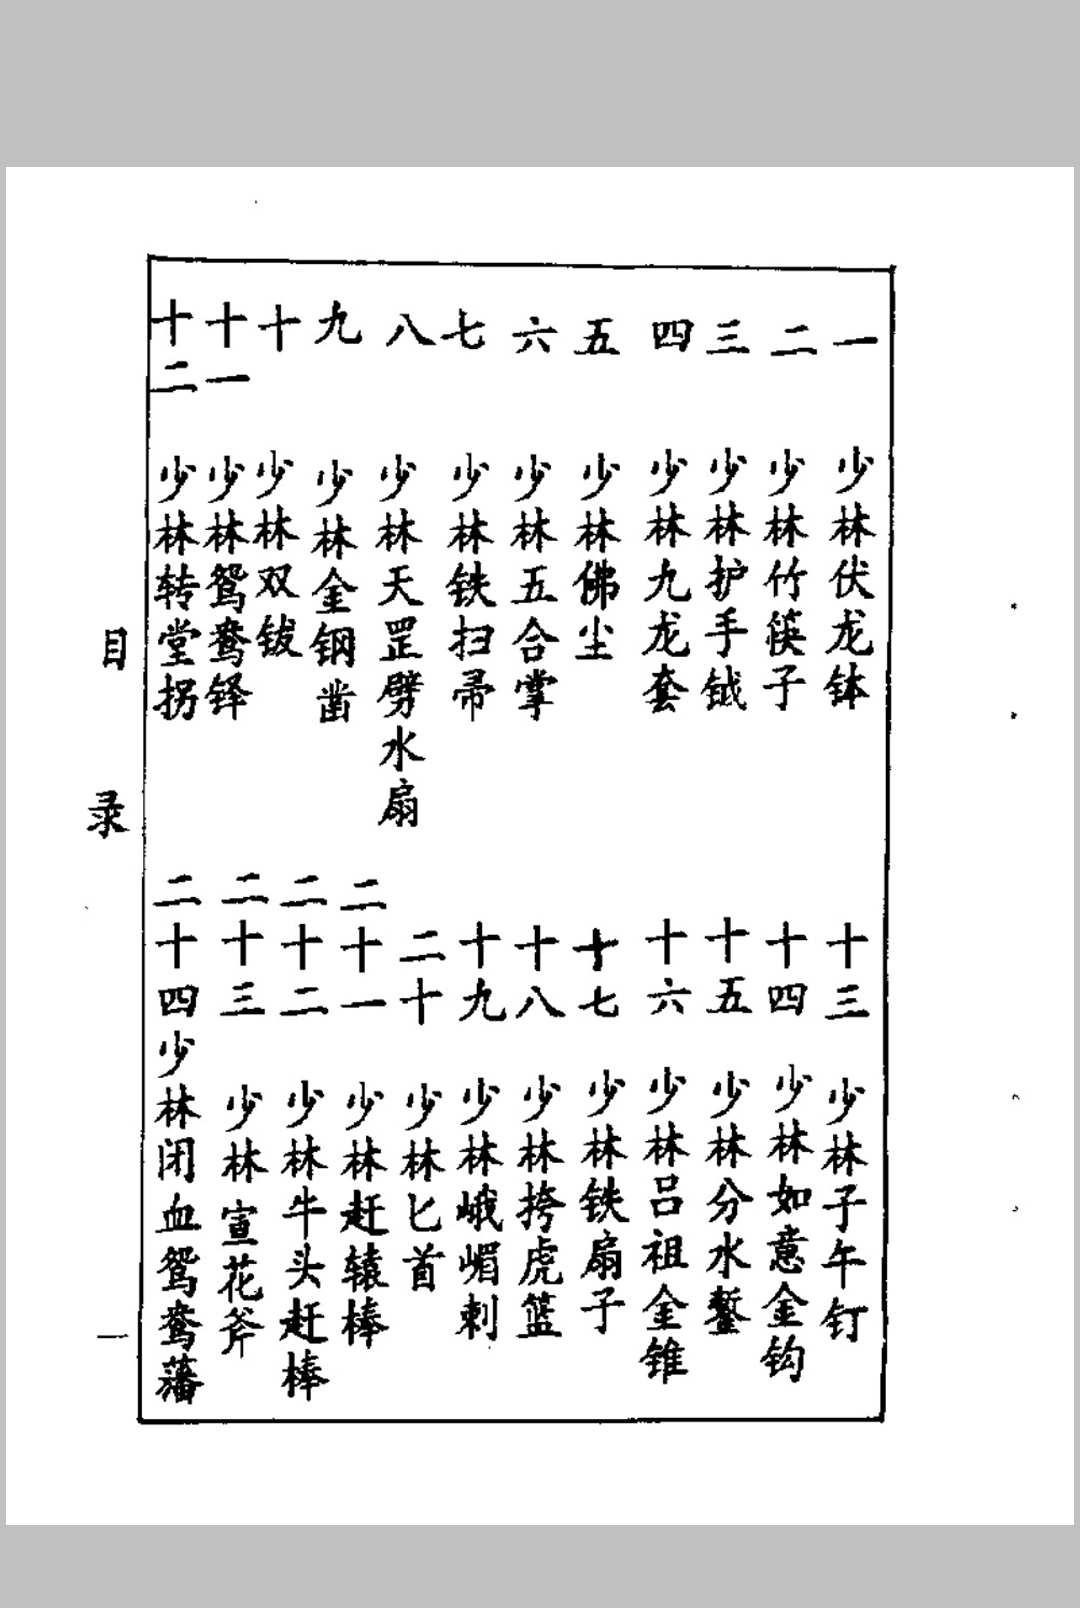 一 少林伏龙钵
二 少林竹筷子
三 少林护手钺
四 少林九龙套
五 少林佛尘
六 少林五合掌
七 少林铁扫帚
八 少林天罡劈水扇
九 少林金钢凿
十 少林双钹
十一 少林鸳鸯铎
十二 少林转堂拐
十三 少林子午钉
十四 少林如意金钩
十五 少林分水錾
十六 少林吕祖金锥
十七 少林铁扇子
十八 少林挎虎篮
十九 少林峨嵋刺
二十 少林匕首
二十一 少林赶辕棒
二十二 少林牛头赶棒
二十三 少林宣花斧
二十四 少林闭血鸳鸯藩
目录
一